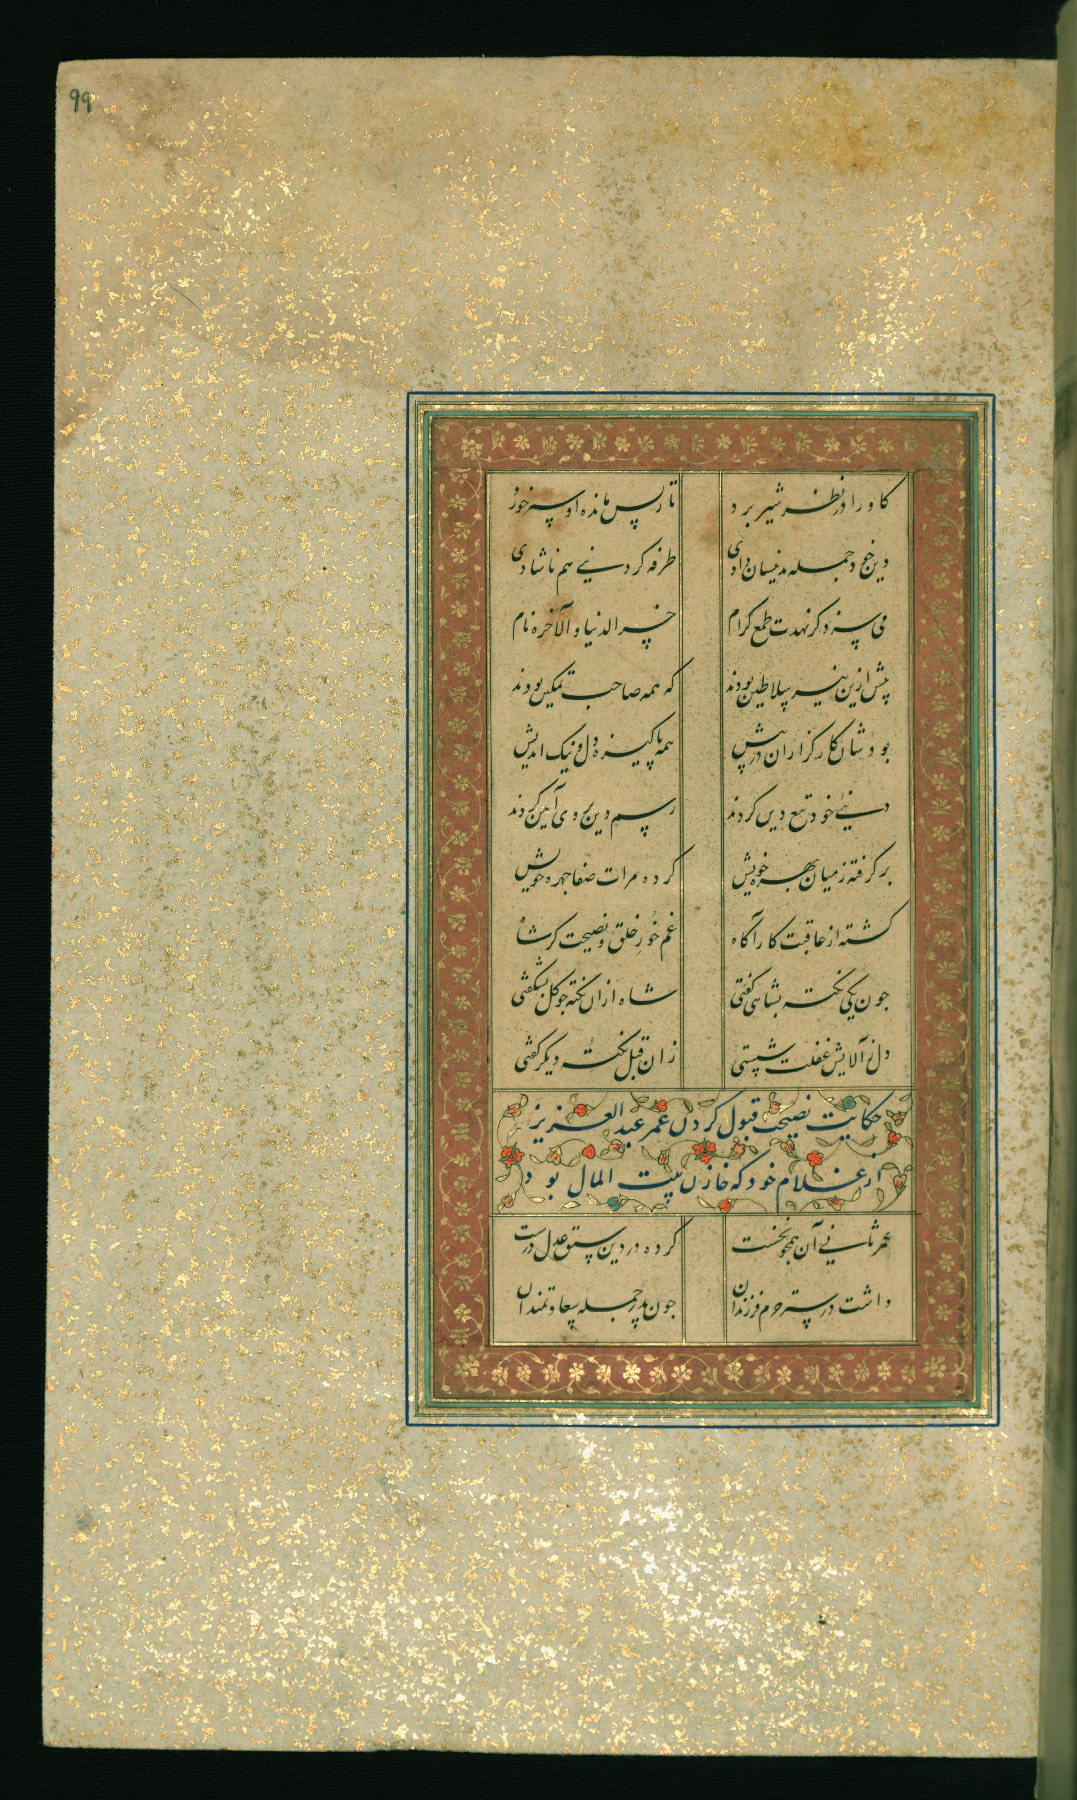 99
کاو را در نظر شیر برد
تا ز پس مانده او سر خورد
دین خود جمله بدنیسان دادی
طرفه کر دنیی هم ناشادی
می سزد کر نهدت طمع کرام
خسر الدنیا و الآخره نام
پیش ازین نیز سلاطین بودند
که همه صاحب تمکین بودند
بودشان کارکزاران در پیش
همه پاکیزه دل و نیک اندیش
دنیی خود تبع دین کردند
رسم دین پروی آیین کردند
بر کرفته ز میان بهره خویش
کرده مرات صفا چهره خویش
کشته از عاقبت کار آکاه
غم خور خلق و نصیحت کر شاه
جون یکی نکته بشاهی کفتی
شاه ازان نکته جو کل بشکفتی
دل ز آلایش غفلت شستی
زان قبل نکته دیکر کفتی
حکایت نصیحت قبول کردن عمر عبد العزیز
از غلام خود که خازن بیت المال بود
عمر ثانی آن همجو نخست
کرده در دین سبق عدل درست
داشت در ستر حرم فرزندان
جون پدر جمله سعادتمندان